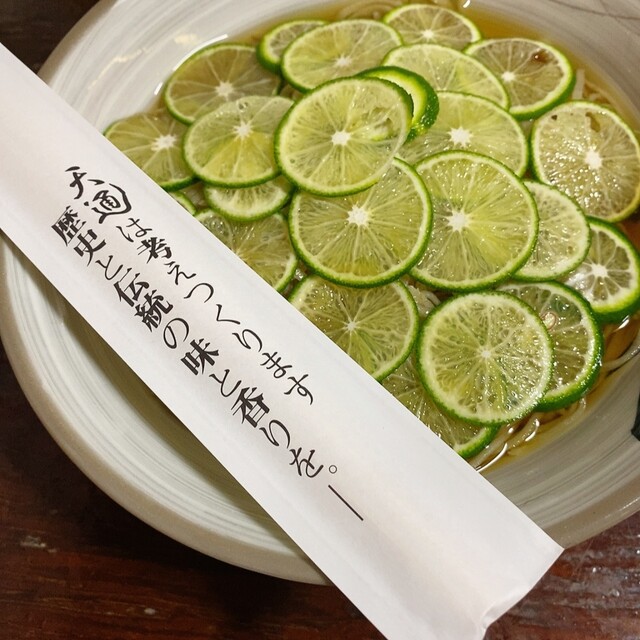 天國は考えつくります
歴史と伝統の味と香りを。—